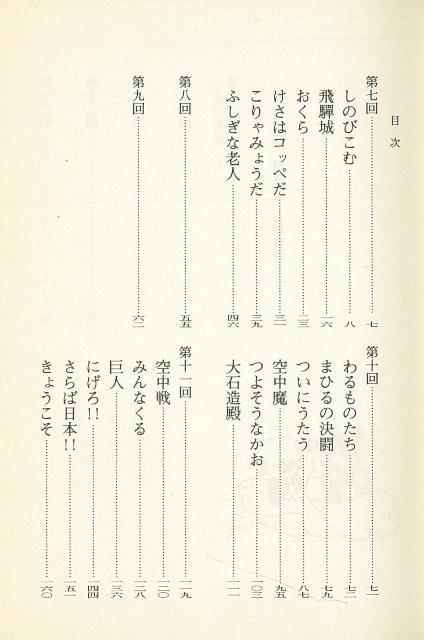 目次
第七回……七
しのびこむ……八
飛驒城……一六
おくら……二三
けさはコッペだ……三一
こりゃみょうだ……三九
ふしぎな老人……四六
第八回……五五
第九回……六二
第十回……七一
わるものたち……七二
まひるの決闘……七九
ついにうたう……八七
空中魔……九五
つよそうなかお……一〇三
大石造殿……一一一
第十一回……一一九
空中戦……一二〇
みんなくる……一二八
巨人……一三六
にげろ!!……一四四
さらば日本!!……一五一
きょうこそ……一六〇